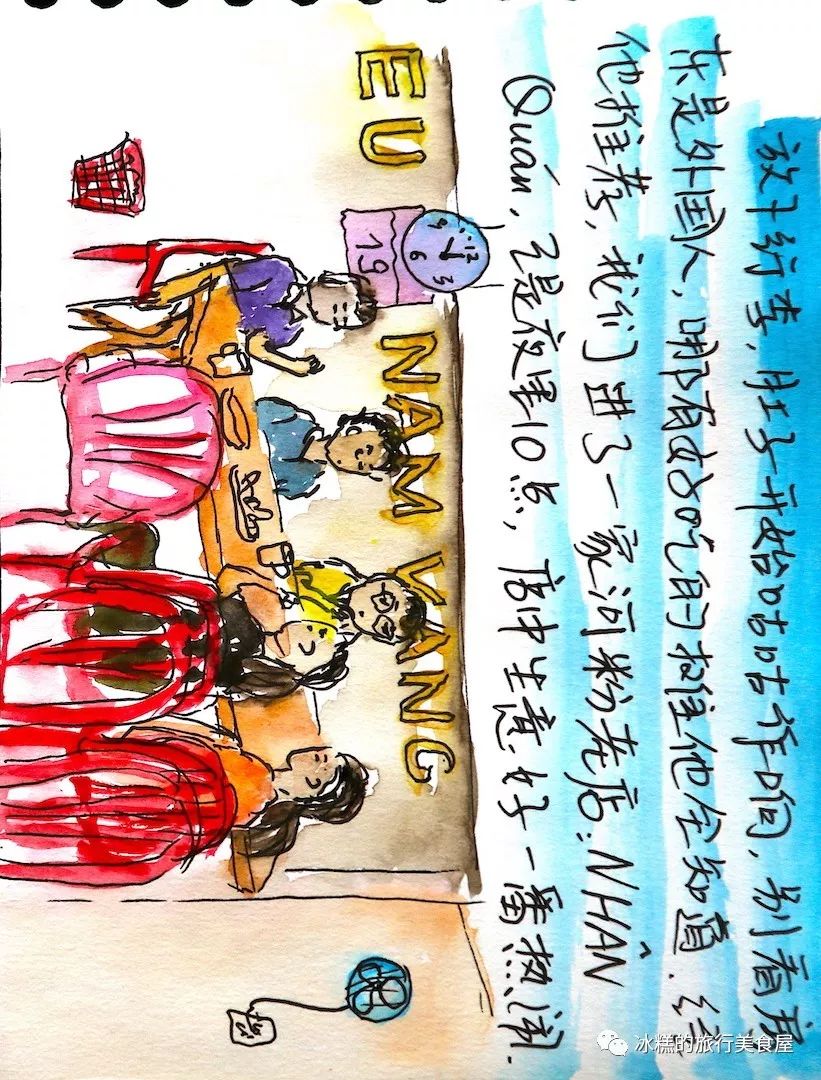 放下行李,肚子开始咕咕作响,别看房
东是外国人,哪有好吃的好住他全知道.经
他推荐,我们进了一家河粉老店:NHÂN
Quán,已是夜里10点,店中生意好一番热闹.
EU NAM VANG
19
12
3
6
9
冰糕的旅行美食屋